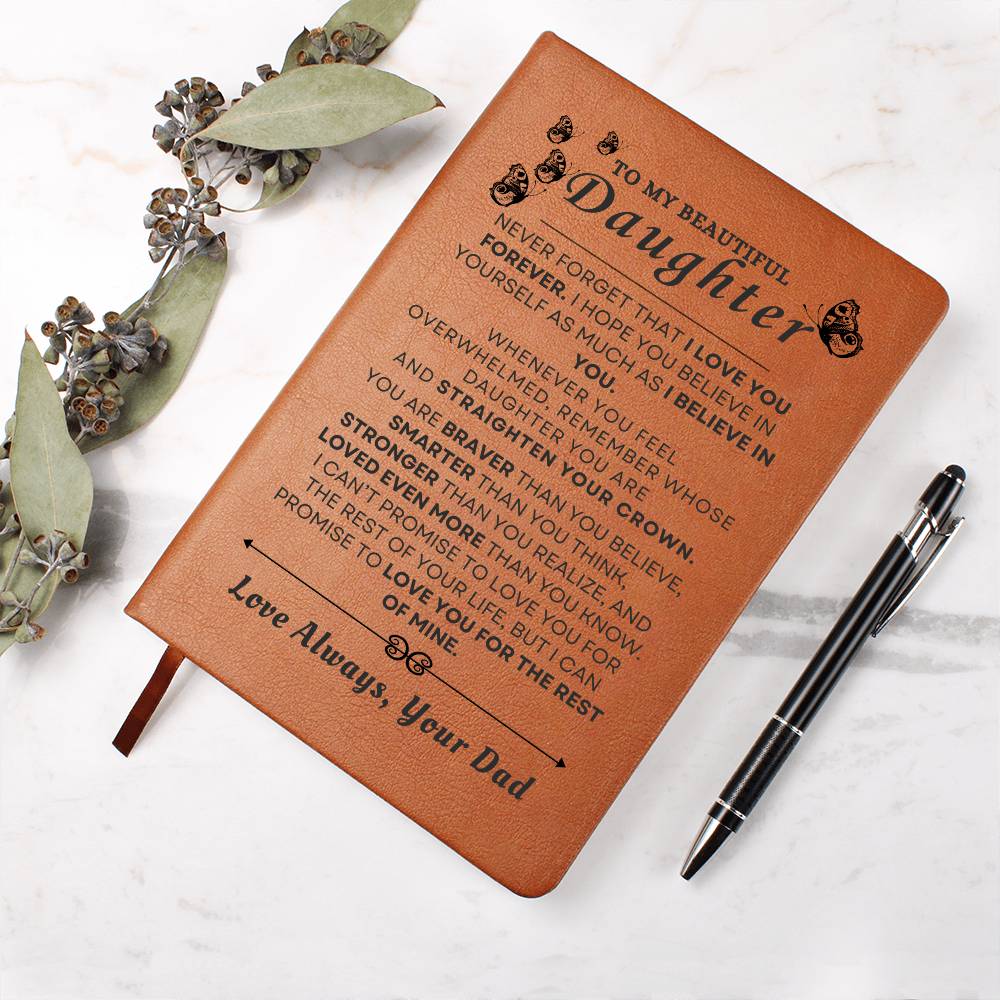 TO MY BEAUTIFUL
Daughter
NEVER FORGET THAT I LOVE YOU
FOREVER. I HOPE YOU BELIEVE IN
YOURSELF AS MUCH AS I BELIEVE IN
YOU.
WHENEVER YOU FEEL
OVERWHELMED, REMEMBER WHOSE
DAUGHTER YOU ARE
AND STRAIGHTEN YOUR CROWN.
YOU ARE BRAVER THAN YOU BELIEVE,
SMARTER THAN YOU THINK,
STRONGER THAN YOU REALIZE, AND
LOVED EVEN MORE THAN YOU KNOW.
I CAN'T PROMISE TO LOVE YOU FOR
THE REST OF YOUR LIFE, BUT I CAN
PROMISE TO LOVE YOU FOR THE REST
OF MINE.
Love Always, Your Dad